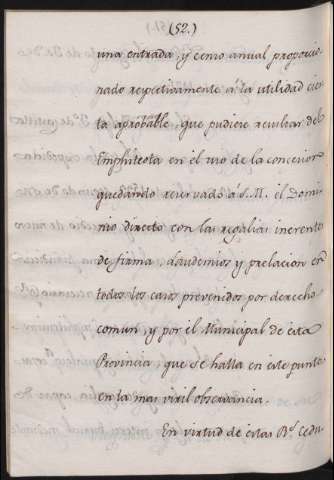 (52.)
una entrada, y censo anual proporcio-
nado respectivamente á la utilidad cier-
ta aprobable, que pudiere resultar del
Emphiteota en el uso de la concesion
quedando reservado á S. M. el Domi-
nio directo con las regalias inerentes
de firma, laudemios y prelacion en
todos los casos prevenidos por derecho
comun, y por el Municipal de esta
Provincia, que se halla en este punto
en la mas viril observancia.
En virtud de estas Rs. Cedu-